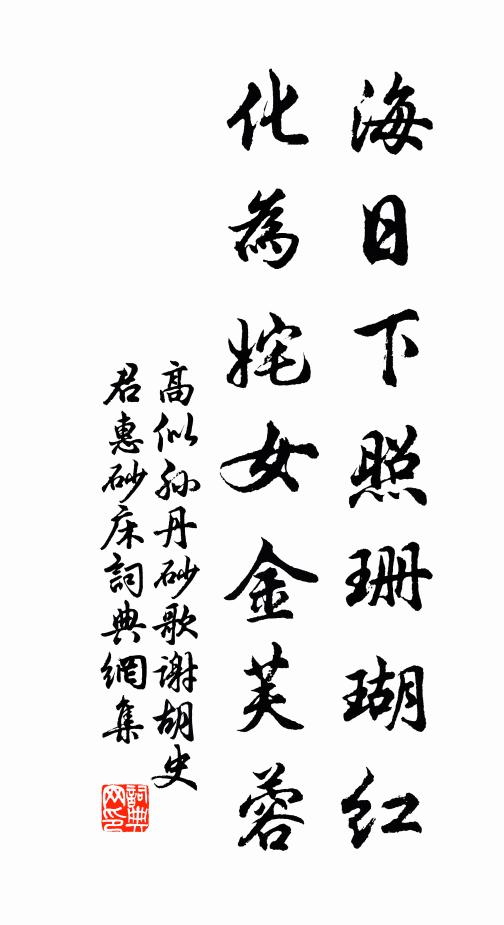 海日下照珊瑚红
化為姹女金芙蓉
高似孙丹砂歌谢胡史
君惠砂床詞典網集
詞典网印